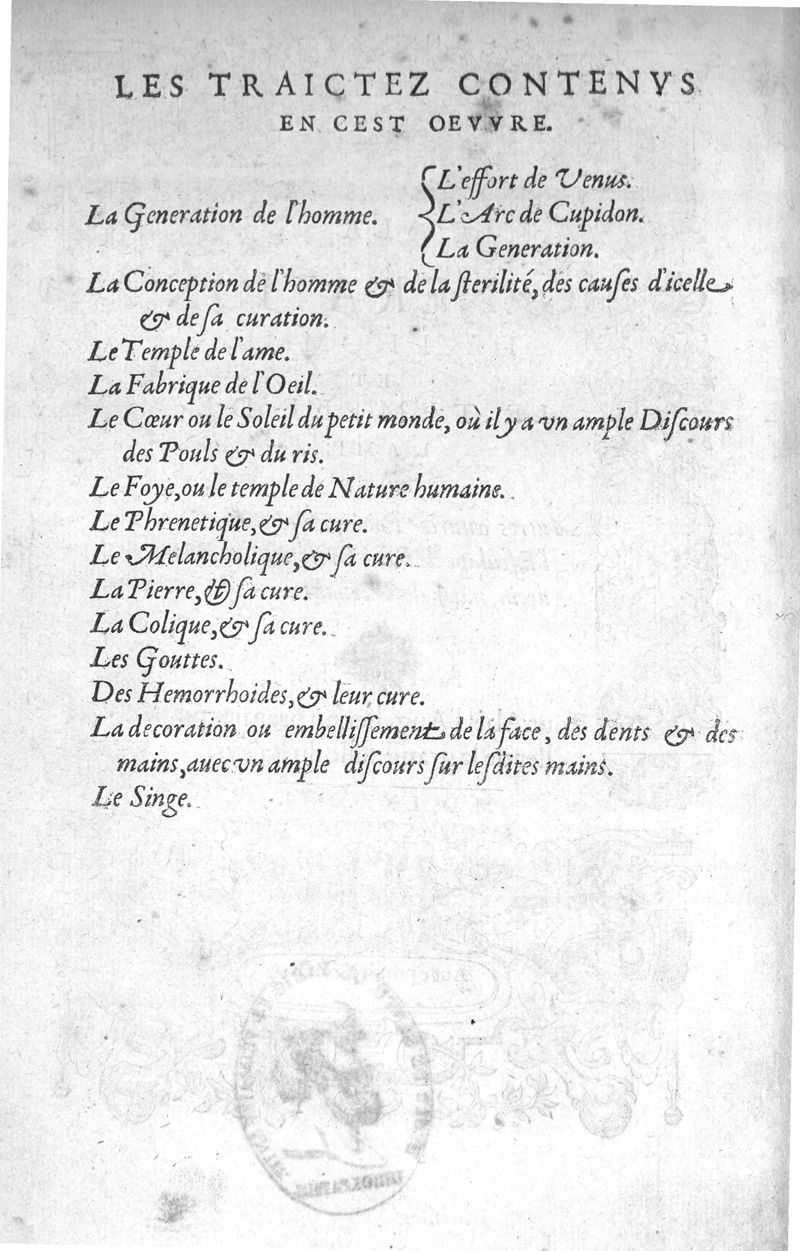 LES TRAICTEZ CONTENVS
EN CEST OEVVRE.
La Generation de l'homme.
L'effort de Venus.
L'Arc de Cupidon.
La Generation.
La Conception de l'homme & de la ſterilité, des cauſes d'icelle
& de ſa curation.
Le Temple de l'ame.
La Fabrique de l'Oeil.
Le Cœur ou le Soleil du petit monde, où il y a vn ample Diſcours
des Pouls & du ris.
Le Foye, ou le temple de Nature humaine.
Le Phrenetique, & ſa cure.
Le Melancholique, & ſa cure.
La Pierre, & ſa cure.
La Colique, & ſa cure.
Les Gouttes.
Des Hemorrhoides, & leur cure.
La decoration ou embelliſſement de la face, des dents & des
mains, auec vn ample diſcours ſur leſdites mains.
Le Singe.